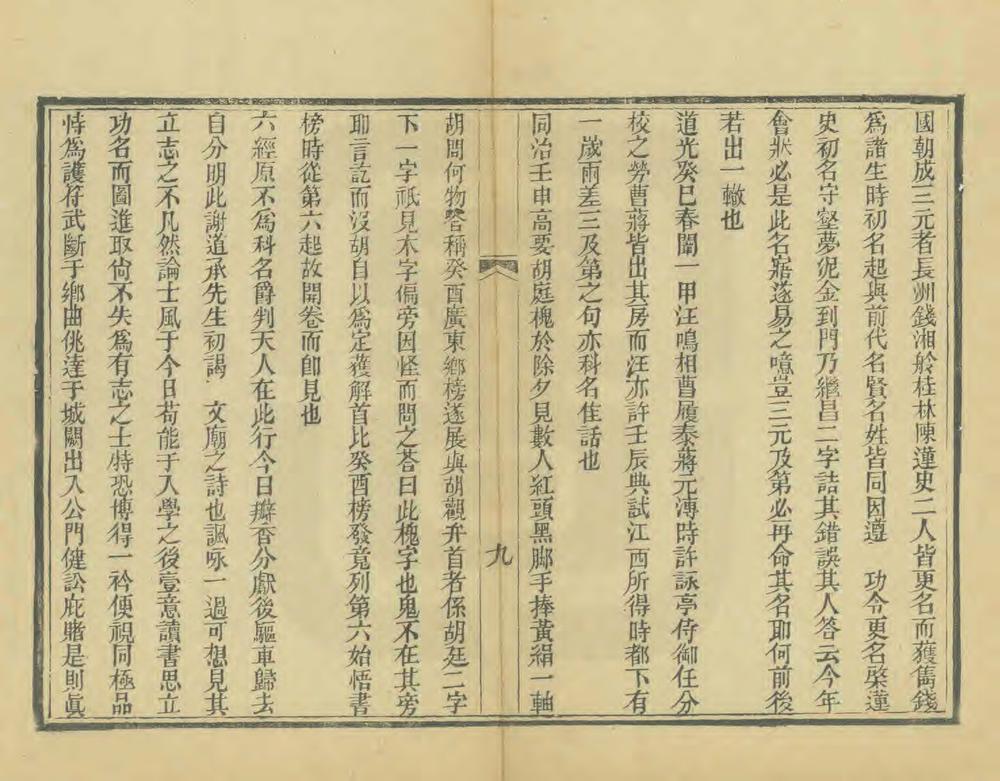 國朝成三元者長洲錢湘舲桂林陳蓮史二人皆更名而獲雋錢
爲諸生時初名起與前代名賢名姓皆同因遵　功令更名棨蓮
史初名守壑夢泥金到門乃繼昌二字詰其錯誤其人答云今年
會狀必是此名寤遂易之噫豈三元及第必再命其名耶何前後
若出一轍也
道光癸巳春闈一甲汪鳴相曹履泰蔣元溥時許詠亭侍御任分
校之勞曹蔣皆出其房而汪亦許壬辰典試江西所得時都下有
一歲兩差三及第之句亦科名佳話也
同治壬申高要胡庭槐於除夕見數人紅頭黑脚手捧黃絹一軸
九
胡問何物咨稱癸酉廣東鄉榜遂展與胡觀弁首者係胡廷二字
下一字祇見木字偏旁因怪而問之荅曰此槐字也鬼不在其旁
耶言訖而沒胡自以爲定獲解首比癸酉榜發竟列第六始悟書
榜時從第六起故開卷而卽見也
六經原不爲科名爵判天人在此行今日瓣香分獻後驅車歸去
自分明此謝道承先生初謁　文廟之詩也諷咏一過可想見其
立志之不凡然論士風于今日苟能于入學之後壹意讀書思立
功名而圖進取尙不失爲有志之士特恐博得一衿便視同極品
恃爲護符武斷于鄉曲佻達于城闕出入公門健訟庇賭是則眞